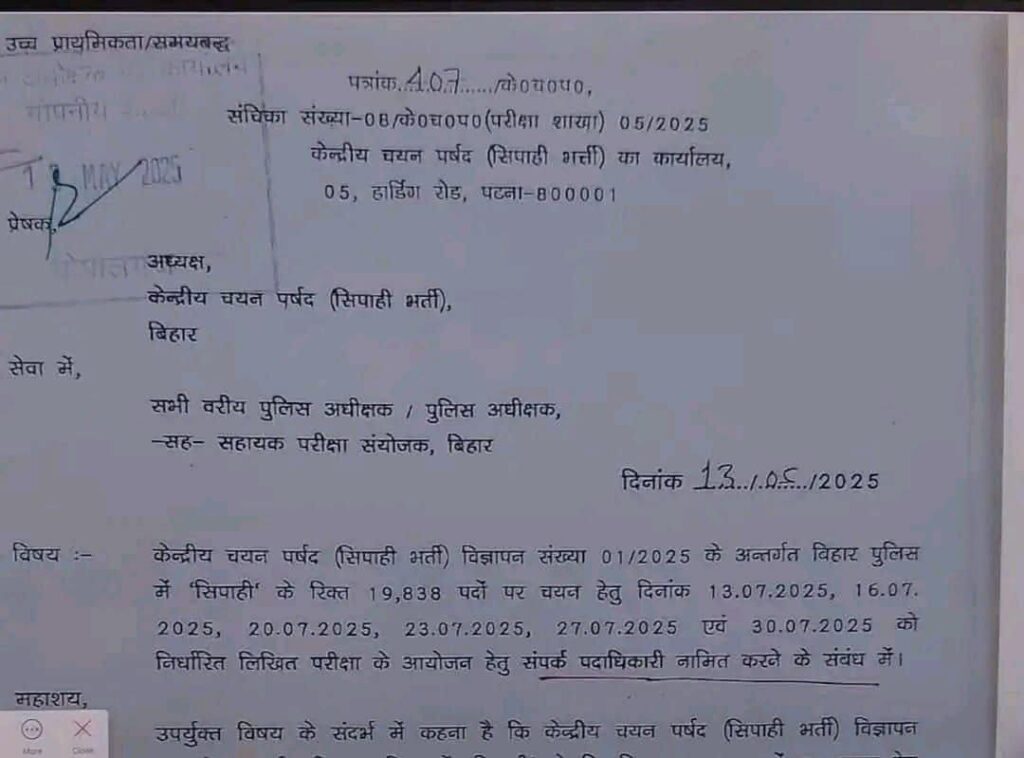 उच्च प्राथमिकता/समयबद्ध
पत्रांक..407...../के०च०प०,
गोपनीय
संचिका संख्या-08/के०च०प०(परीक्षा शाखा) 05/2025
केन्द्रीय चयन पर्षद (सिपाही भर्त्ती) का कार्यालय,
MAY 2025
05, हार्डिंग रोड, पटना-800001
प्रेषक,
अध्यक्ष,
केन्द्रीय चयन पर्षद (सिपाही भर्ती),
बिहार
सेवा में,
सभी वरीय पुलिस अधीक्षक / पुलिस अधीक्षक,
-सह- सहायक परीक्षा संयोजक, बिहार
दिनांक 13../.05../2025
विषय :- केन्द्रीय चयन पर्षद (सिपाही भर्ती) विज्ञापन संख्या 01/2025 के अन्तर्गत बिहार पुलिस
में 'सिपाही' के रिक्त 19,838 पदों पर चयन हेतु दिनांक 13.07.2025, 16.07.
2025, 20.07.2025, 23.07.2025, 27.07.2025 एवं 30.07.2025 को
निर्धारित लिखित परीक्षा के आयोजन हेतु संपर्क पदाधिकारी नामित करने के संबंध में।
महाशय,
उपर्युक्त विषय के संदर्भ में कहना है कि केन्द्रीय चयन पर्षद (सिपाही भर्ती) विज्ञापन
More Close